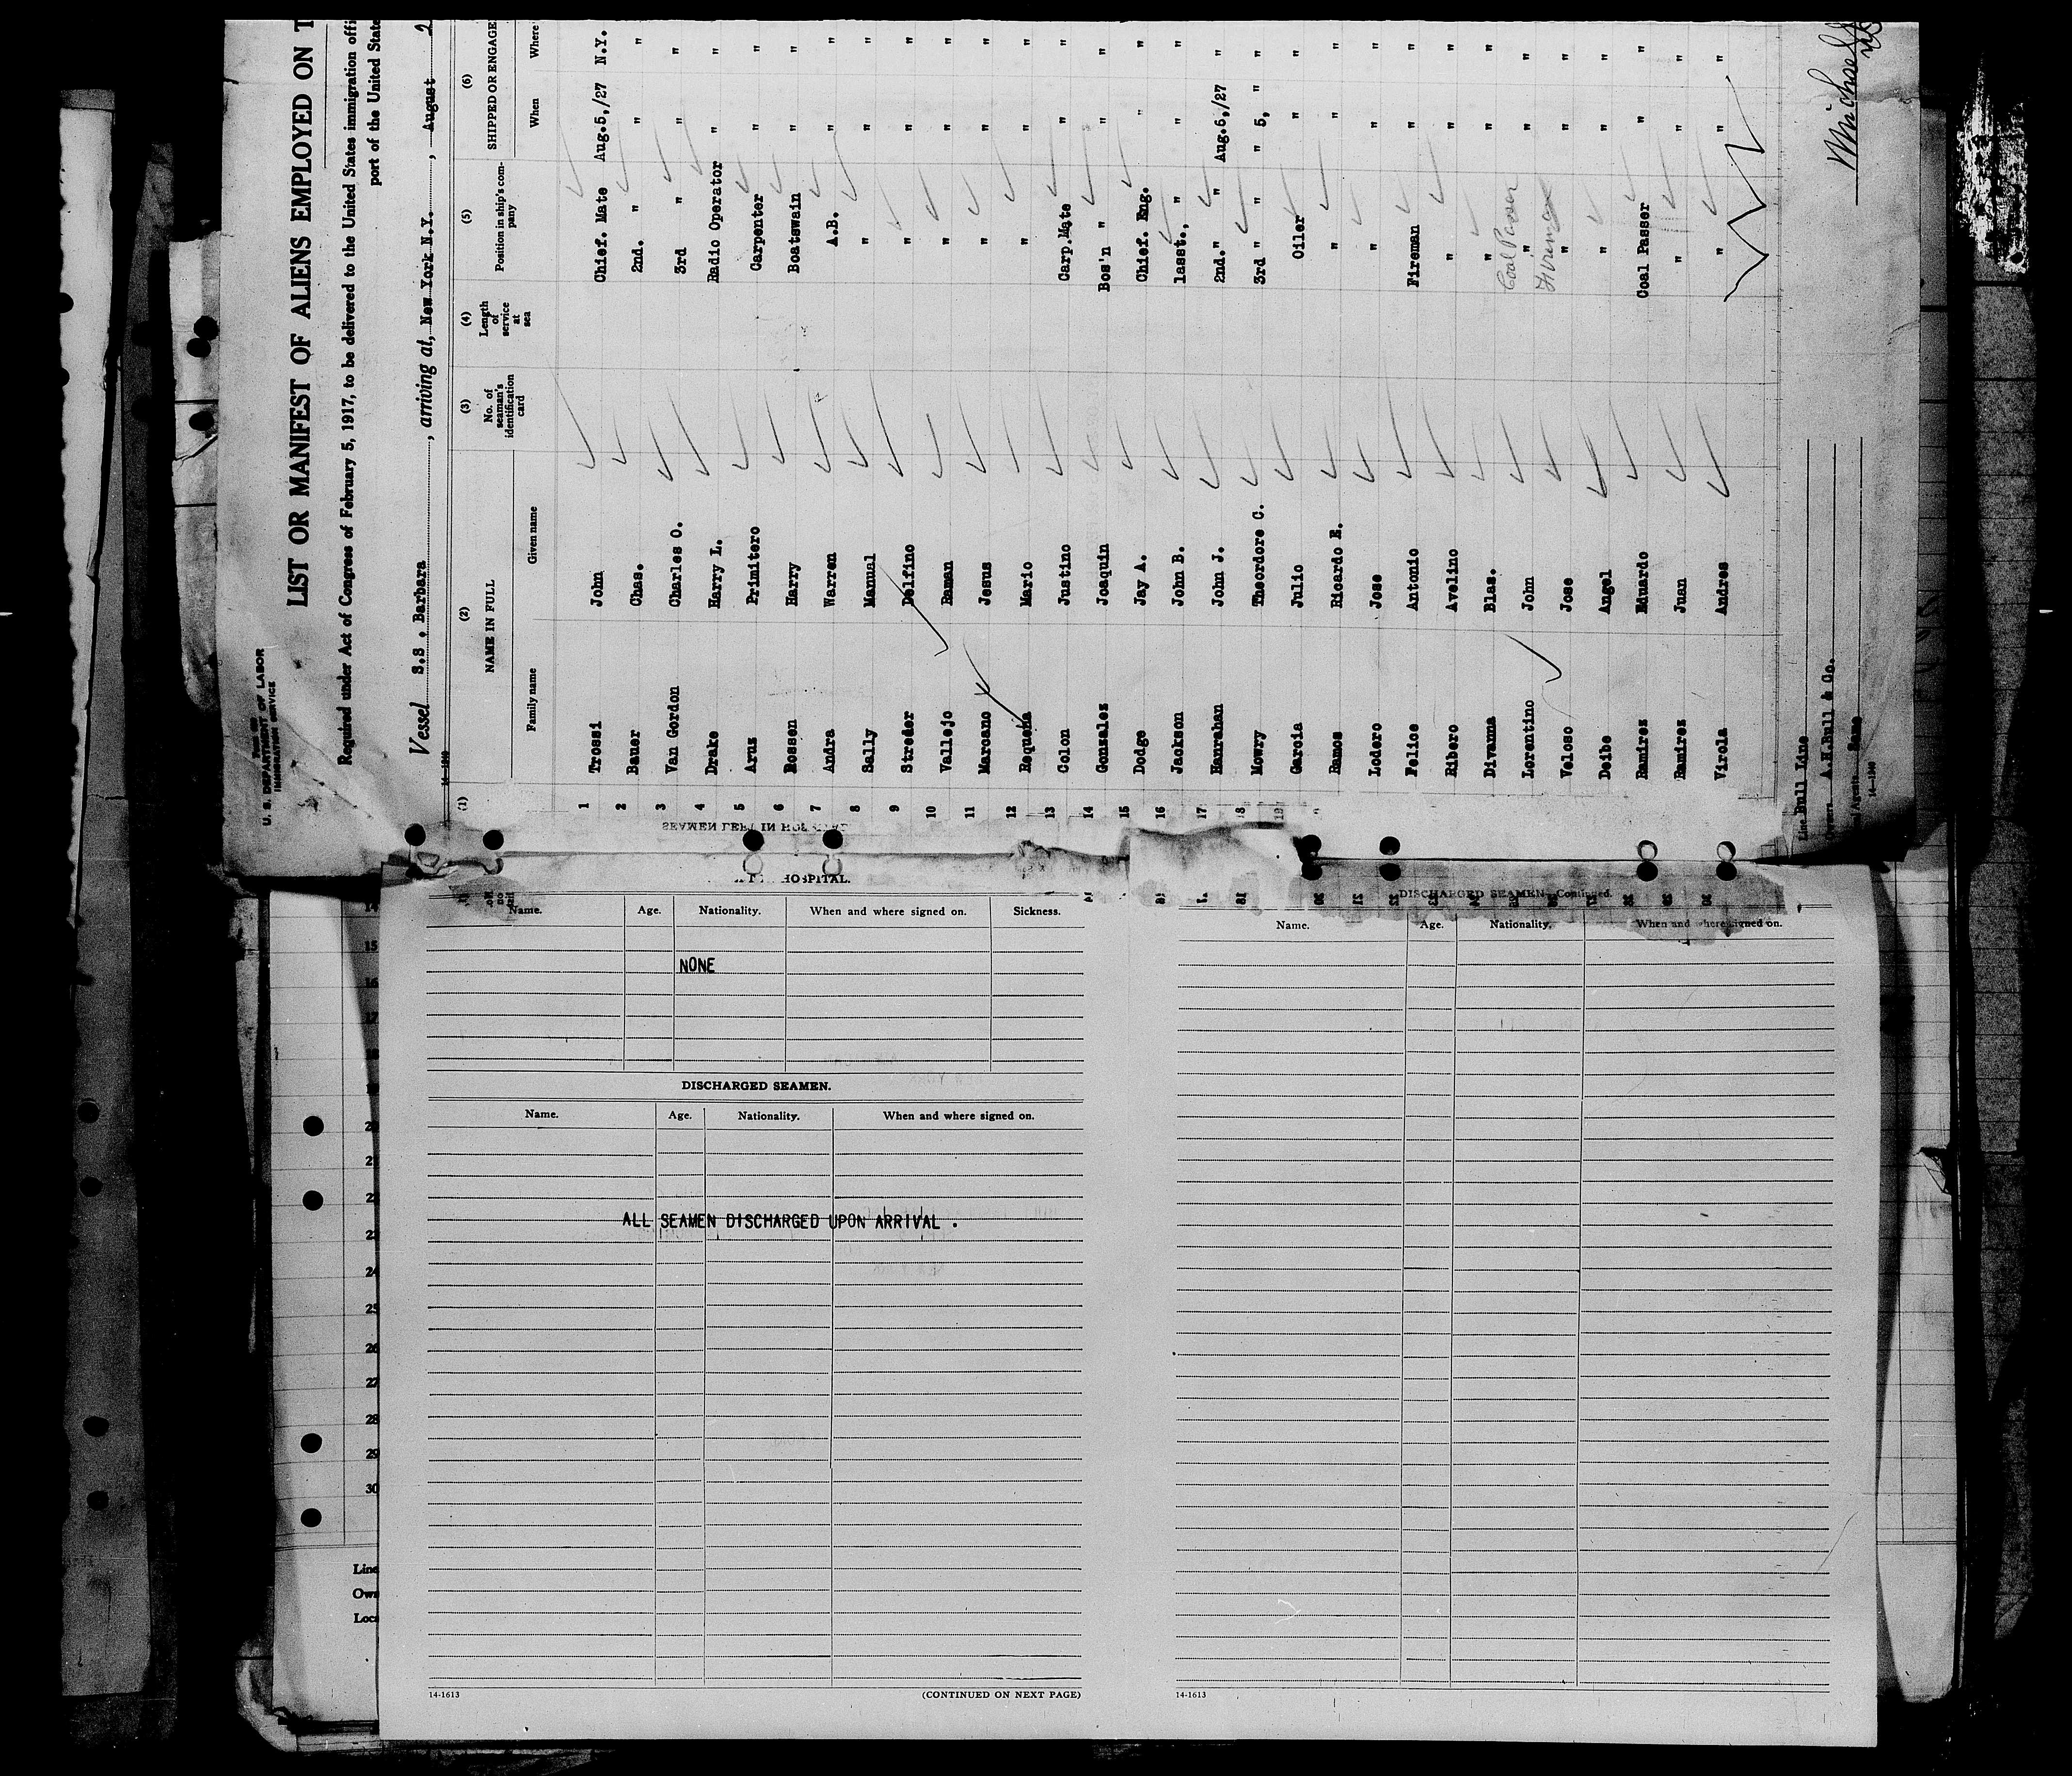 U. S. DEPARTMENT OF LABOR
IMMIGRATION SERVICE
LIST OR MANIFEST OF ALIENS EMPLOYED ON T
Required under Act of Congress of February 5, 1917, to be delivered to the United States immigration offi
port of the United State
Vessel S.S. Barbara, arriving at, New York N.Y., August 2
(1) (2) (3) (4) (5) (6)
NAME IN FULL No. of seaman's identification card Length of service at sea Position in ship's company SHIPPED OR ENGAGE
Family name Given name When Where
1 Trossi John Chief. Mate Aug.5,/27 N.Y.
2 Bauer Chas. 2nd. " " "
3 Van Gordon Charles O. 3rd " " "
4 Drake Harry L. Radio Operator " "
5 Aruz Primitero Carpenter " "
6 Rossen Harry Boatswain " "
7 Andra Warren A.B. " "
8 Sally Manual " " "
9 Streder Delfino " " "
10 Vallejo Raman " " "
11 Marcano Jesus " " "
12 Requena Mario " " "
13 Colon Justino Carp.Mate " "
14 Gonzalez Joaquin Bos'n " " "
15 Dodge Jay A. Chief. Eng. " "
16 Jackson John B. 1asst., " " "
17 Hanrahan John J. 2nd." " Aug.6,/27 "
18 Mowry Theordore C. 3rd " " " 5, "
19 Garcia Julio Oiler " "
Ramos Ricardo E. " " "
Lodero Jose " " "
Felice Antonio Fireman " "
Ribero Avelino " " "
Divanna Blas. " " "
Lorentino John " Coal Passer " "
Veloso Jose " Fireman " "
Deibe Angel " " "
Ramirez Eduardo Coal Passer " "
Ramirez Juan " " "
Virola Andres " " "
Line Bull Line
Owners A.H.Bull & Co.
Agents Same
14—1240
SEAMEN LEFT IN HOSPITAL
HOSPITAL.
Name. Age. Nationality. When and where signed on. Sickness.
NONE
DISCHARGED SEAMEN.
Name. Age. Nationality. When and where signed on.
ALL SEAMEN DISCHARGED UPON ARRIVAL .
14-1613 (CONTINUED ON NEXT PAGE)
DISCHARGED SEAMEN—Continued.
Name. Age. Nationality. When and where signed on.
14-1613
15
16
17
18
19
20
21
23
24
25
26
27
28
29
30
Line
Own
Loca